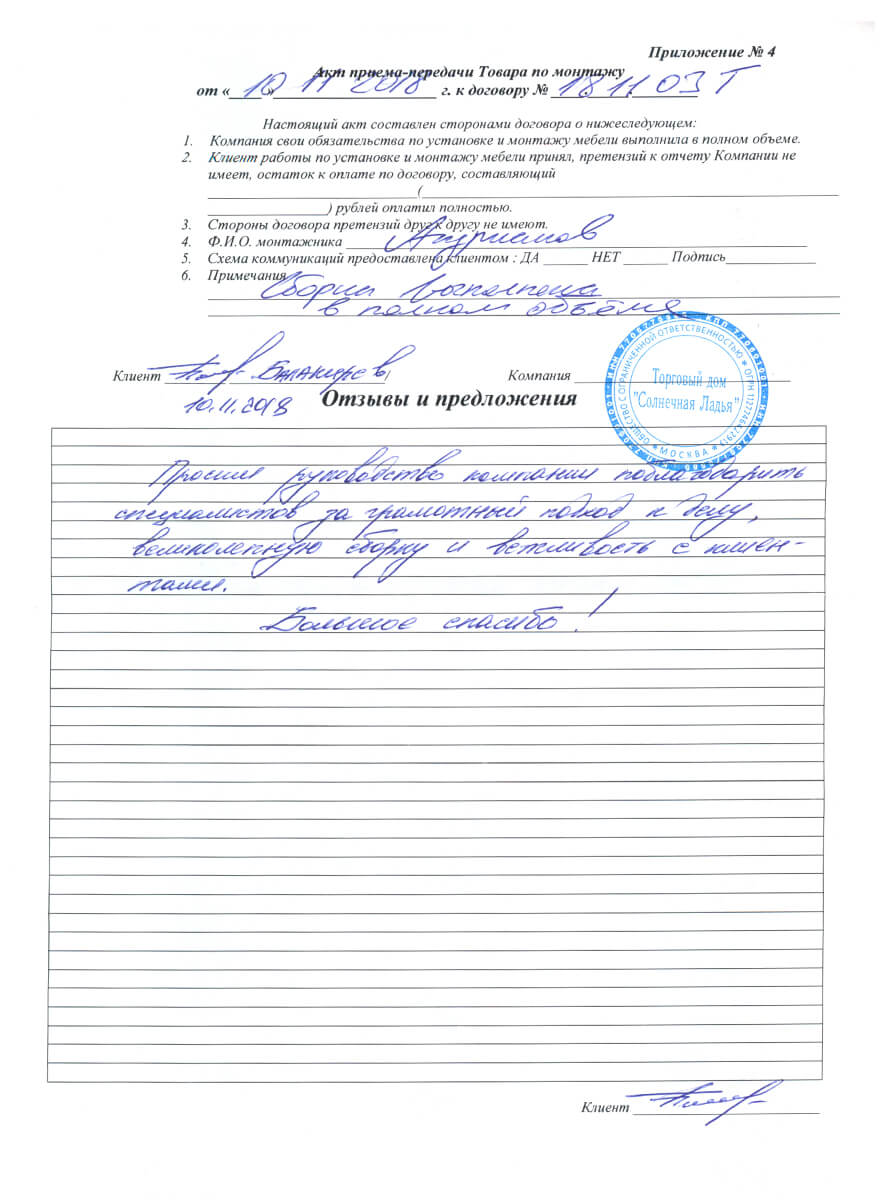 Приложение № 4
Акт приема-передачи Товара по монтажу
от « 10 » 11 2018 г. к договору № 18 11. 03 Т
Настоящий акт составлен сторонами договора о нижеследующем:
1. Компания свои обязательства по установке и монтажу мебели выполнила в полном объеме.
2. Клиент работы по установке и монтажу мебели принял, претензий к отчету Компании не
имеет, остаток к оплате по договору, составляющий
(
) рублей оплатил полностью.
3. Стороны договора претензий друг к другу не имеют.
4. Ф.И.О. монтажника
5. Схема коммуникаций предоставлена клиентом : ДА ______ НЕТ ______ Подпись____________
6. Примечания
Сборка выполнена
в полном объёме
Клиент Балакирев / Компания
10.11.2018
Торговый дом
"Солнечная Ладья"
ОБЩЕСТВО С ОГРАНИЧЕННОЙ ОТВЕТСТВЕННОСТЬЮ
МОСКВА
Отзывы и предложения
Просим руководство компании поблагодарить
специалистов за грамотный подход к делу,
великолепную сборку и вежливость с клиен-
тами.
Большое спасибо!
Клиент